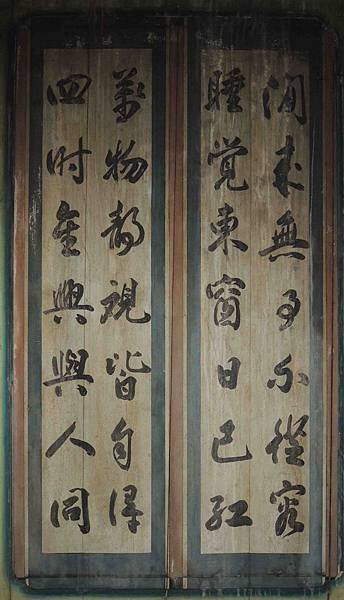 閒來無事不從容
睡覺東窗日已紅
萬物靜觀皆自得
四时佳興與人同